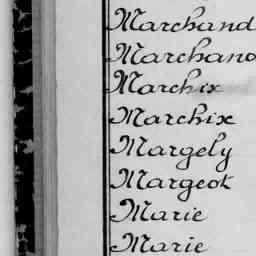 Marchand
Marchand
Marchix
Marchix
Margely
Margeot
Marie
Marie